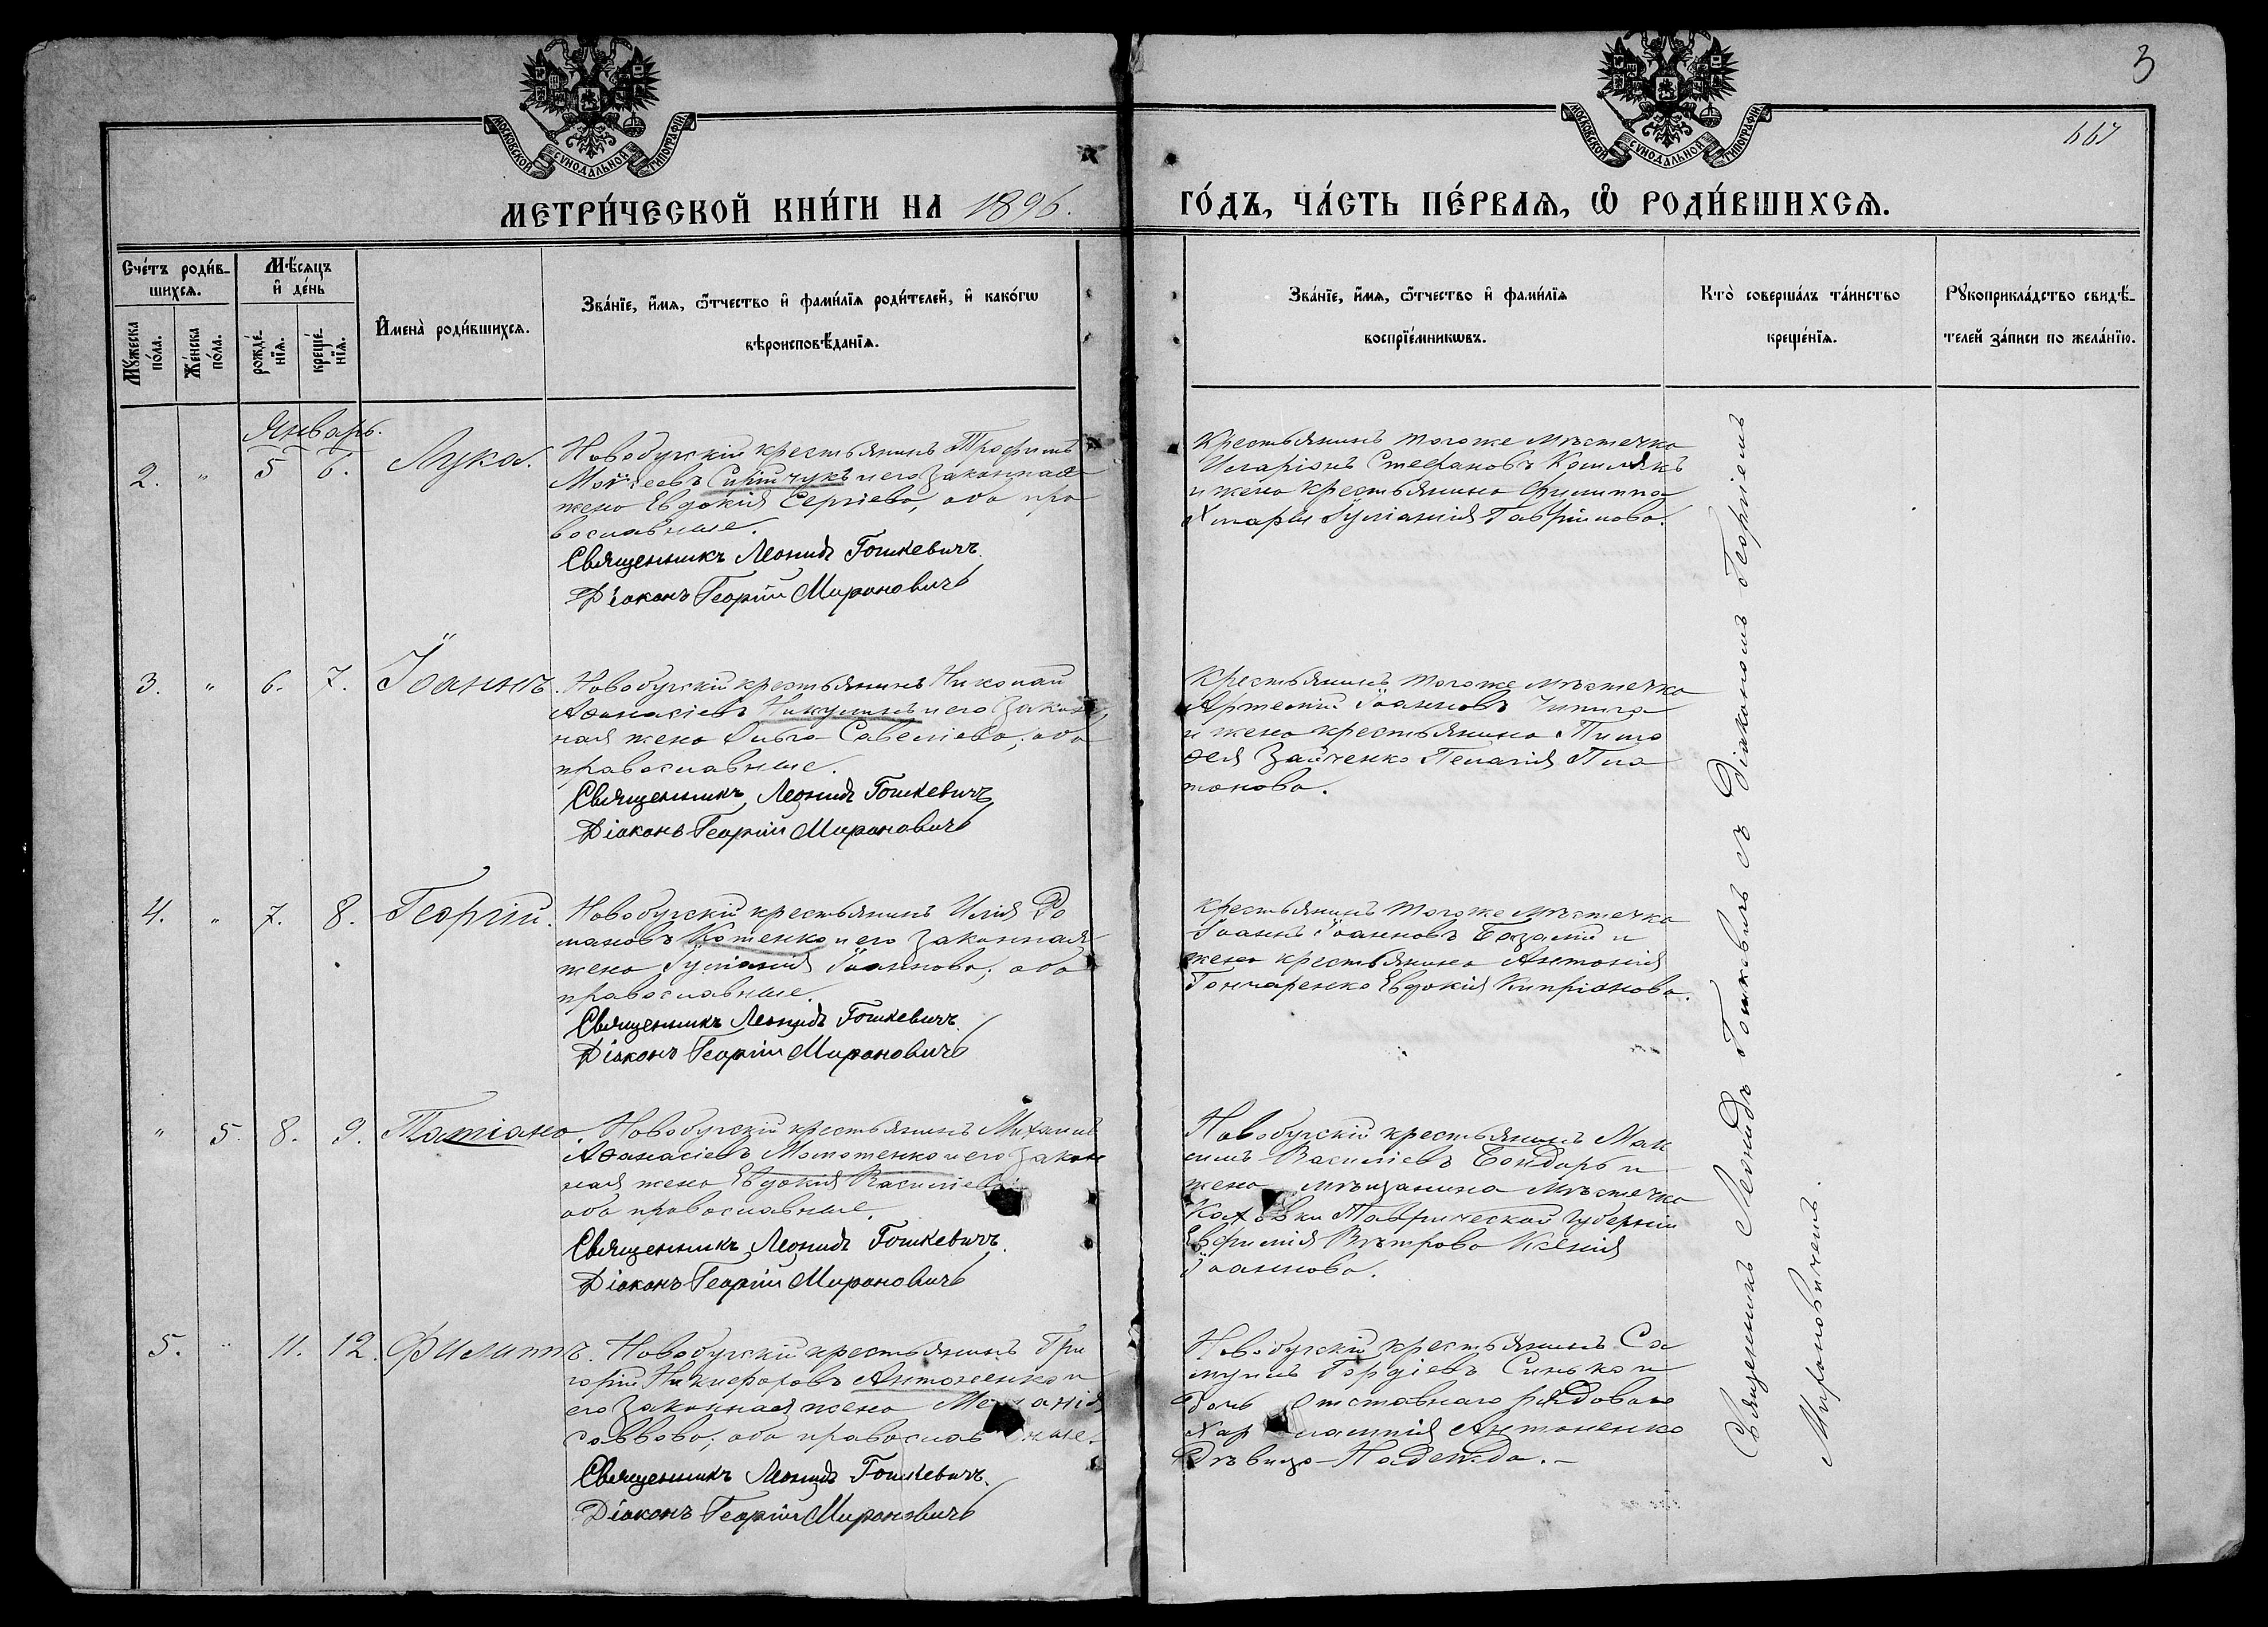 3
667
МОСКОВСКОЙ СУНОДАЛЬНОЙ ТИПОГРАФІИ
МОСКОВСКОЙ СУНОДАЛЬНОЙ ТИПОГРАФІИ
МЕТРИ́ЧЕСКОЙ КНИ́ГИ НА 1896.
ГО́ДЪ, ЧА́СТЬ ПЕ́РВАѦ, Ѡ РОДИ́ВШИХСѦ.
Сче́тъ роди́в-
шихсѧ.
Мѣ́сѧцъ
и҆ де́нь
Мꙋжеска
по́ла.
Же́нска
по́ла.
рожде́-
нїѧ.
креще́-
нїѧ.
И҆мена̀ роди́вшихсѧ.
Зва́нїе, и҆́мѧ, ѻ҆́тчество и҆ фами́лїѧ роди́телей, и҆ како́гѡ
вѣроисповѣ́данїѧ.
Зва́нїе, и҆́мѧ, ѻ҆́тчество и҆ фами́лїѧ
воспрїе́мникѡвъ.
Кто̀ соверша́лъ та́инство
креще́нїѧ.
Рꙋкоприкла́дство свидѣ́-
телей за́писи по жела́нїю.
Январь.
2. " 5 6. Лука.
Новобугскій крестьянинъ Трофимъ
Моѵсеевъ и его законная
жена Евдокія Сергіева, оба пра
вославные.
Священникъ Леонидъ Гошкевичъ.
Діаконъ Георгій Мироновичъ
Крестьянинъ тогоже мѣстечка
Иларіонъ Стефановъ
и жена крестьянина Филиппа
Хмары Іуліанія Гавріилова.
3. " 6. 7. Іоаннъ.
Новобугскій крестьянинъ Николай
Аѳанасіевъ Никулинъ и его закон
ная жена Ольга Савеліева; оба
православные.
Священникъ Леонидъ Гошкевичъ
Діаконъ Георгій Мироновичъ
Крестьянинъ тогоже мѣстечка
Артемій Іоанновъ Чипига
и жена крестьянина Тимо
ѳея Зайченко Пелагія Пла
тонова.
4. " 7. 8. Георгій.
Новобугскій крестьянинъ Илія Ро
мановъ Котенко и его законная
жена Іуліанія Іоаннова; оба
православные.
Священникъ Леонидъ Гошкевичъ.
Діаконъ Георгій Мироновичъ
Крестьянинъ тогоже мѣстечка
Іоаннъ Іоанновъ Базалій и
жена крестьянина Антонія
Гончаренко Евдокія Кипріанова.
" 5. 8. 9. Татіана.
Новобугскій крестьянинъ Михаилъ
Аѳанасіевъ Момотенко и его закон
ная жена Евдокія Василіева
оба православные.
Священникъ Леонидъ Гошкевичъ.
Діаконъ Георгій Мироновичъ
Новобугскій крестьянинъ Мак
симъ Василіевъ Бондарь и
жена мѣщанина мѣстечка
Каховки Таврической губерніи
Евфимія Вѣтрова Ксенія
Іоаннова.
5. " 11. 12. Филиппъ.
Новобугскій крестьянинъ Гри
горій Никифоровъ Антоненко и
его законная жена Меланія
Саввова; оба православные.
Священникъ Леонидъ Гошкевичъ.
Діаконъ Георгій Мироновичъ
Новобугскій крестьянинъ Са
муилъ Гордіевъ Синько и
дочь отставнаго рядоваго
Харлампія Антоненко
дѣвица Надежда. –
Священникъ Леонидъ Гошкевичъ съ Діакономъ Георгіемъ
Мироновичемъ.